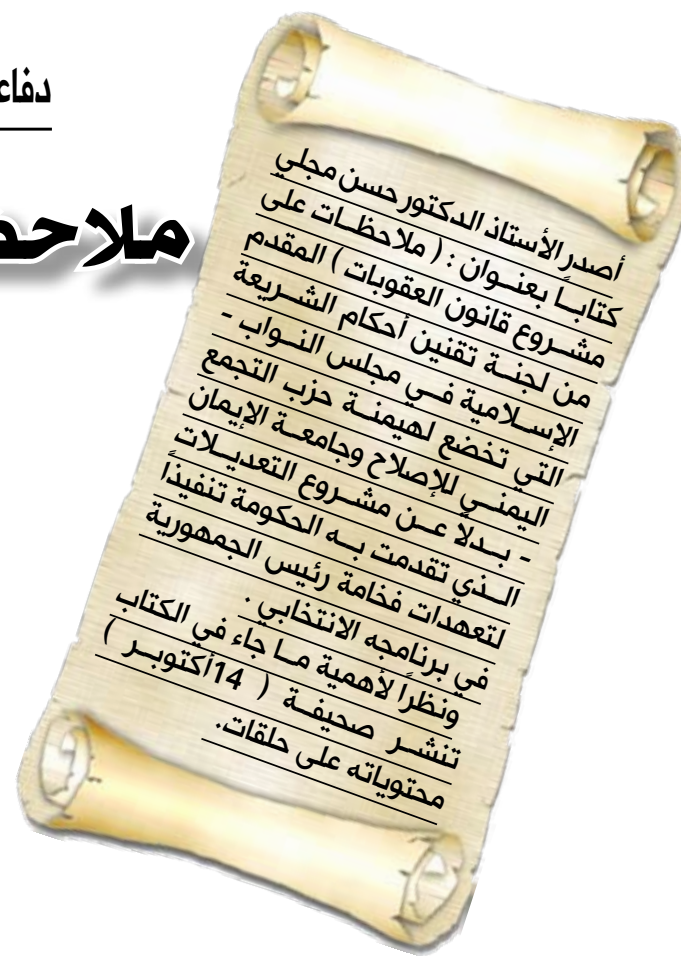 دفاع
ملاحظ
أصدر الأستاذ الدكتور حسن مجلي
كتاباً بعنوان : ( ملاحظات على
مشروع قانون العقوبات ) المقدم
من لجنة تقنين أحكام الشريعة
الإسلامية في مجلس النواب -
التي تخضع لهيمنة حزب التجمع
اليمني للإصلاح وجامعة الإيمان
- بدلاً عن مشروع التعديلات
الذي تقدمت به الحكومة تنفيذاً
لتعهدات فخامة رئيس الجمهورية
في برنامجه الانتخابي .
ونظراً لأهمية ما جاء في الكتاب
تنشر صحيفة ( 14أكتوبر )
محتوياته على حلقات.